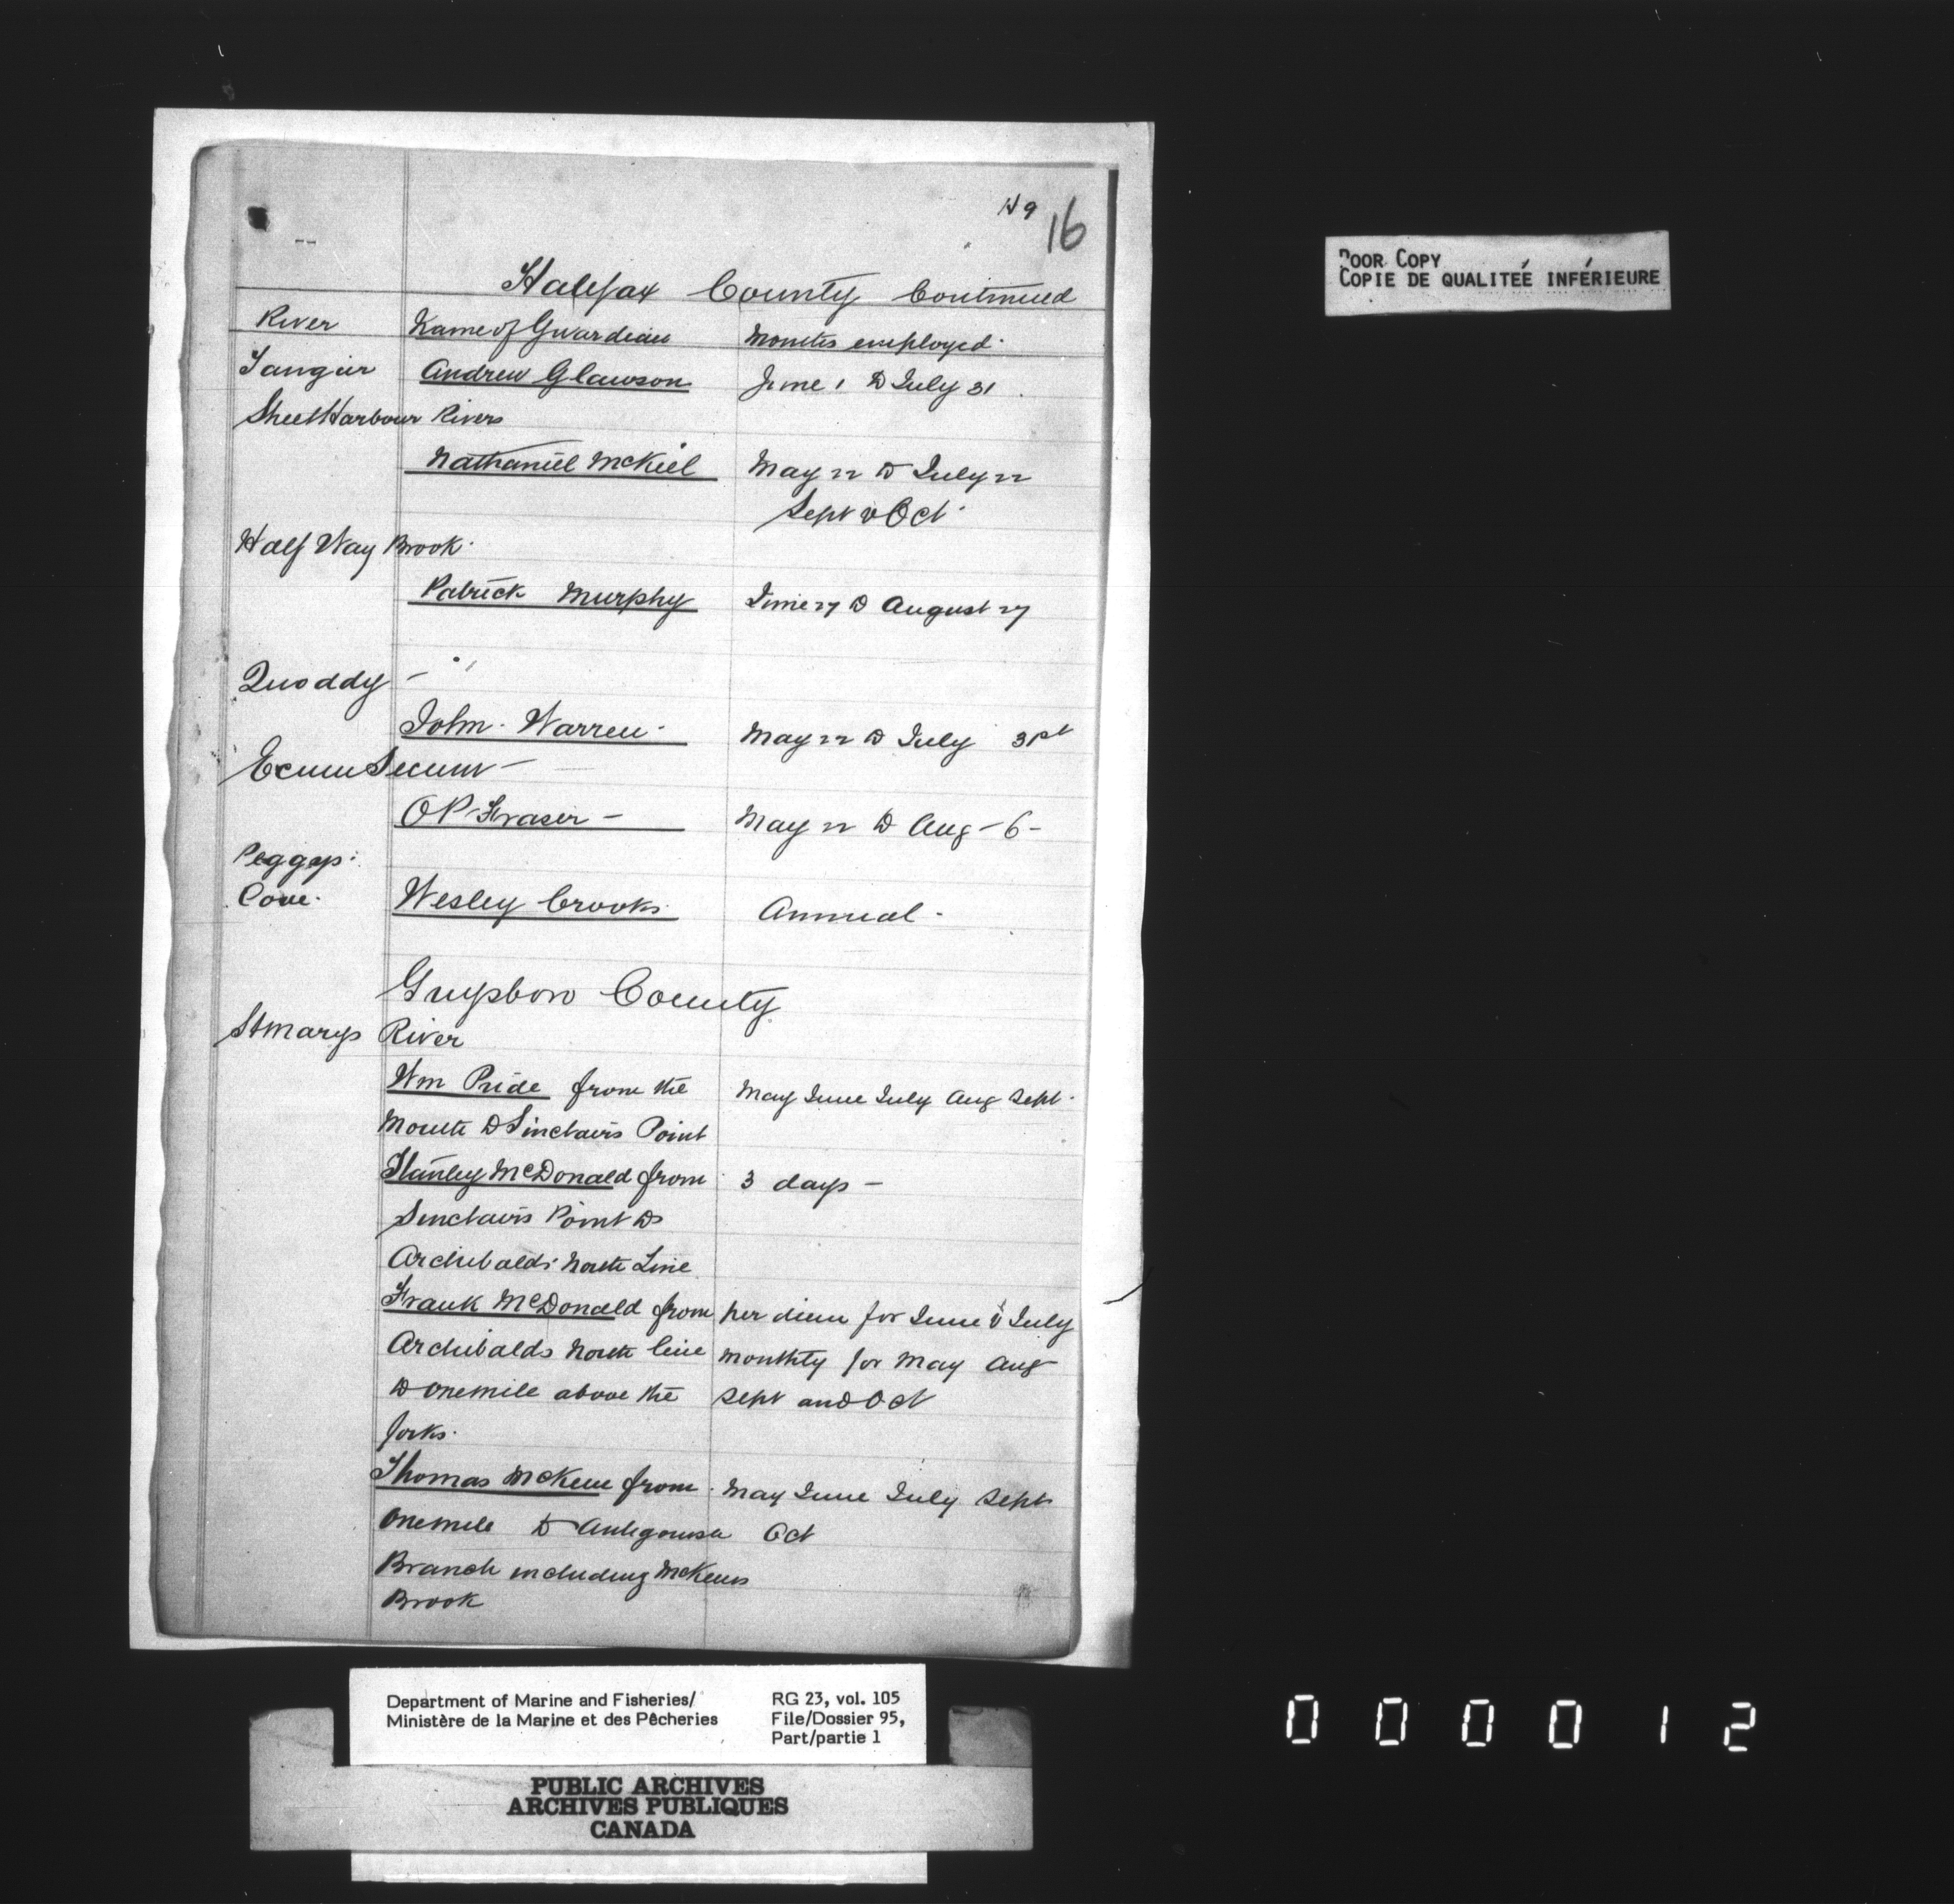 H9 16
Halifax County Continued
River Name of Guardian Months employed.
Tangier Andrew Glawson June 1 to July 31.
Sheet Harbour Rivers
Nathaniel McKiel May 22 to July 22
Sept & Oct.
Half Way Brook.
Patrick Murphy June 27 to August 27
Quoddy -
John Warren. May 22 to July 31st
Ecum Secum -
O P Fraser - May 22 to Aug - 6 -
Peggys.
Cove. Wesley Crooks. Annual.
Guysboro County
St Marys River
Wm Pride from the May June July Aug Sept.
Mouth to Sinclairs Point
Stanley McDonald from 3 days -
Sinclairs Point to
Archibalds North Line
Frank McDonald from per diem for June & July
Archibalds North line monthly for May Aug
to one mile above the Sept and Oct
forks.
Thomas McKeen from May June July Sept
One mile to Antigonish Oct
Branch including McKeens
Brook
POOR COPY
COPIE DE QUALITEÉ INFÉRIEURE
Department of Marine and Fisheries/ RG 23, vol. 105
Ministère de la Marine et des Pêcheries File/Dossier 95,
Part/partie 1
PUBLIC ARCHIVES
ARCHIVES PUBLIQUES
CANADA
000012